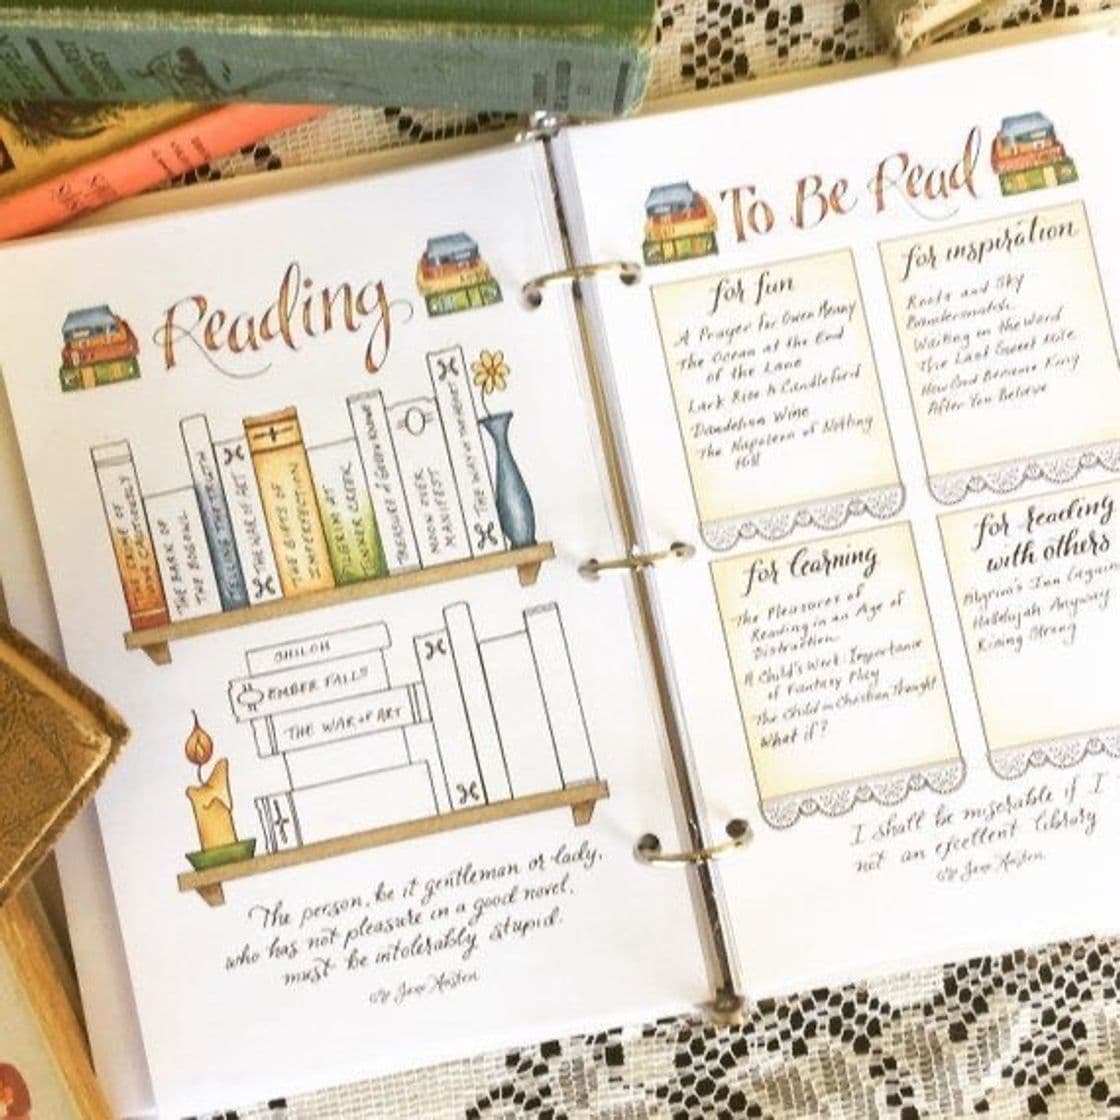 Reading
THE CRIME OF
THE BARK OF
THE BOGONG
TELLING THE TRUTH
THE WAR OF ART
THE GIFTS OF
IMPERFECTION
PILGRIM AT
TINKER CREEK
MOON OVER
MANIFEST
SHILOH
EMBER FALLS
THE WAR OF ART
The person, be it gentleman or lady,
who has not pleasure in a good novel,
must be intolerably stupid.
Jane Austen
To Be Read
for fun
A Prayer for Owen Meany
The Ocean at the End
of the Lane
Lark Rise to Candleford
Dandelion Wine
The Napoleon of Notting
Hill
for inspiration
Roots and Sky
Wandersnatch
Waiting on the Word
The Last Sweet Mile
How God Became King
After You Believe
for learning
The Pleasures of
Reading in an Age of
Distraction
A Child's Work: Importance
of Fantasy Play
The Child in Christian Thought
What if?
for reading
with others
Pilgrim's Inn (again
Hallelujah Anyway
Rising Strong
I shall be miserable if I
not an excellent library
Jane Austen